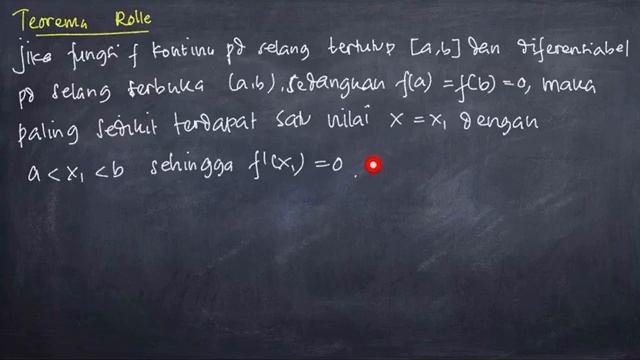 Teorema Rolle
Jika fungsi f kontinu pd selang tertutup [a,b] dan diferensiabel
pd selang terbuka (a,b), sedangkan f(a) = f(b) = 0, maka
paling sedikit terdapat satu nilai x = x₁ dengan
a < x₁ < b sehingga f'(x₁) = 0.